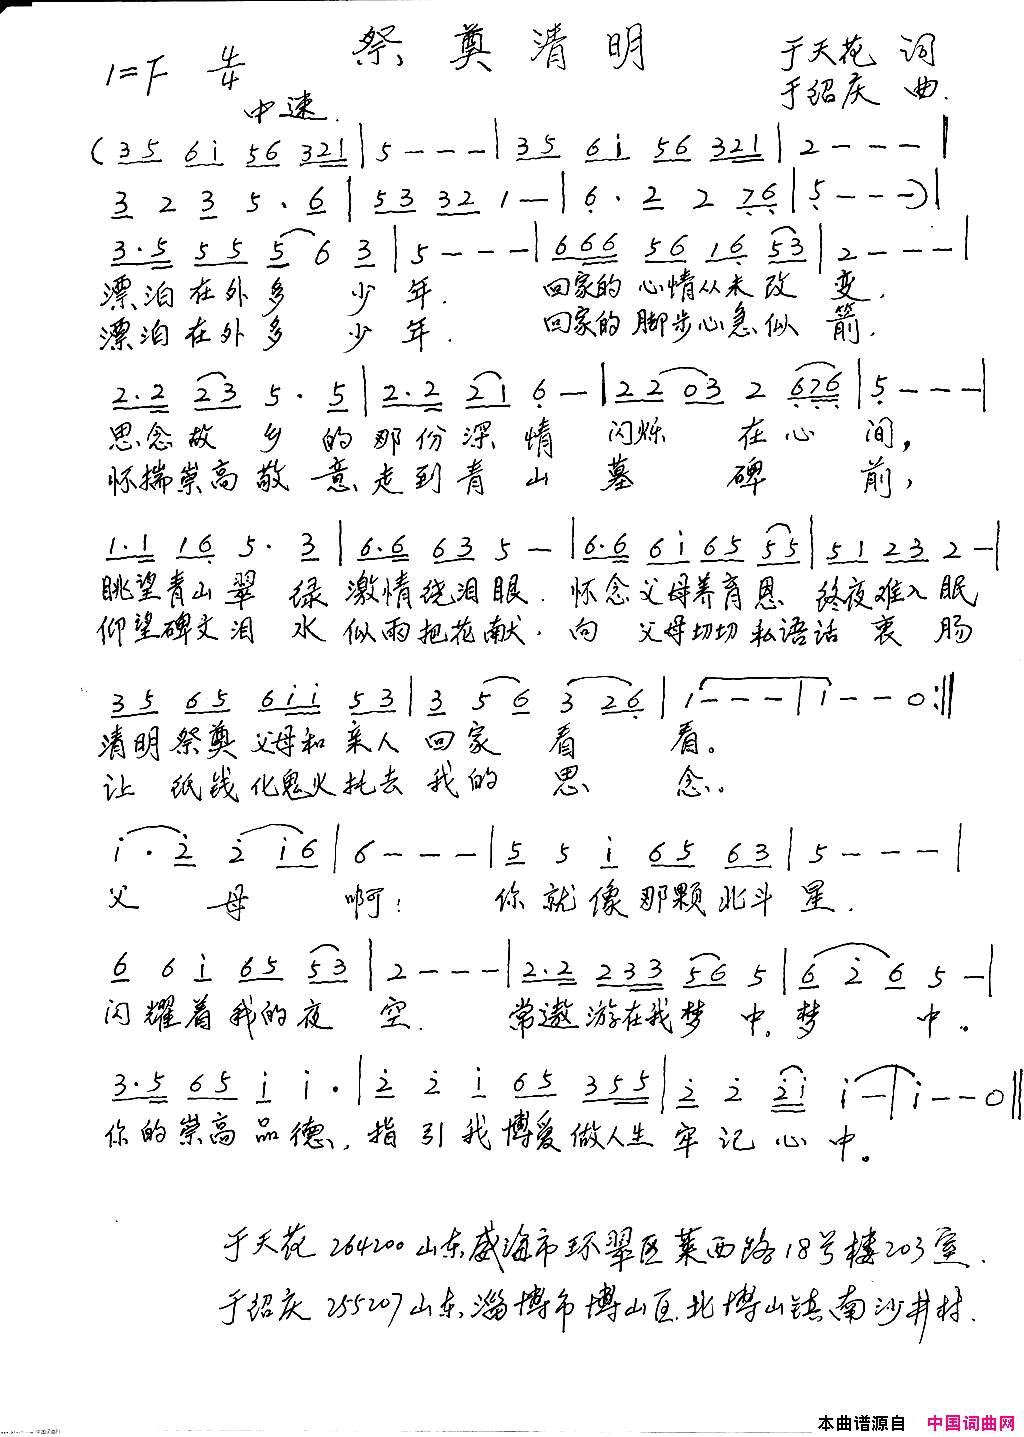 祭奠清明
1=F 4/4
于天花 词
于绍庆 曲.
中速.
(35 6i 56 321|5---|35 6i 56 321|2---|
3 2 3 5·6|53 32 1-|6·2 2 76|5---)|
3·5 55 5 6 3|5---|666 56 16 53|2---|
漂泊在外多 少 年. 回家的 心情从未改 变.
漂泊在外多 少 年. 回家的 脚步心急似 箭.
2·2 23 5·5|2·2 21 6-|22 03 2 626|5---|
思念故 乡 的那份深情 闪烁 在心 间,
怀揣崇高敬 意走到青 山 墓 碑 前,
1·1 16 5·3|6·6 63 5-|6·6 6i 65 55|51 23 2-|
眺望青山翠 绿 激情绕泪眼. 怀念父母养育恩 终夜难入眠
仰望碑文泪 水 似雨把花献. 向 父母切切私语话衷肠
35 65 6ii 53|3 5 6 3 26|1---|1--0:‖
清明祭奠父母和亲人 回家 看 看。
让 纸钱化鬼火托去 我的 思 念。
i·2 2 i6|6---|5 5 i 65 63|5---|
父 母 啊! 你就像那颗北斗 星.
6 6 i 65 53|2---|2·2 233 56 5|6 2 6 5-|
闪耀着我的夜 空. 常遨游在我梦 中。梦 中。
3·5 65 i i·|2 2 i 65 355|2 2 2i i-|i--0‖
你的崇高品德, 指引我博爱做人生 牢记心中。
于天花 264200 山东威海市环翠区莱西路18号楼203室.
于绍庆 255207 山东淄博市博山区北博山镇南沙井村.
本曲谱源自 中国词曲网